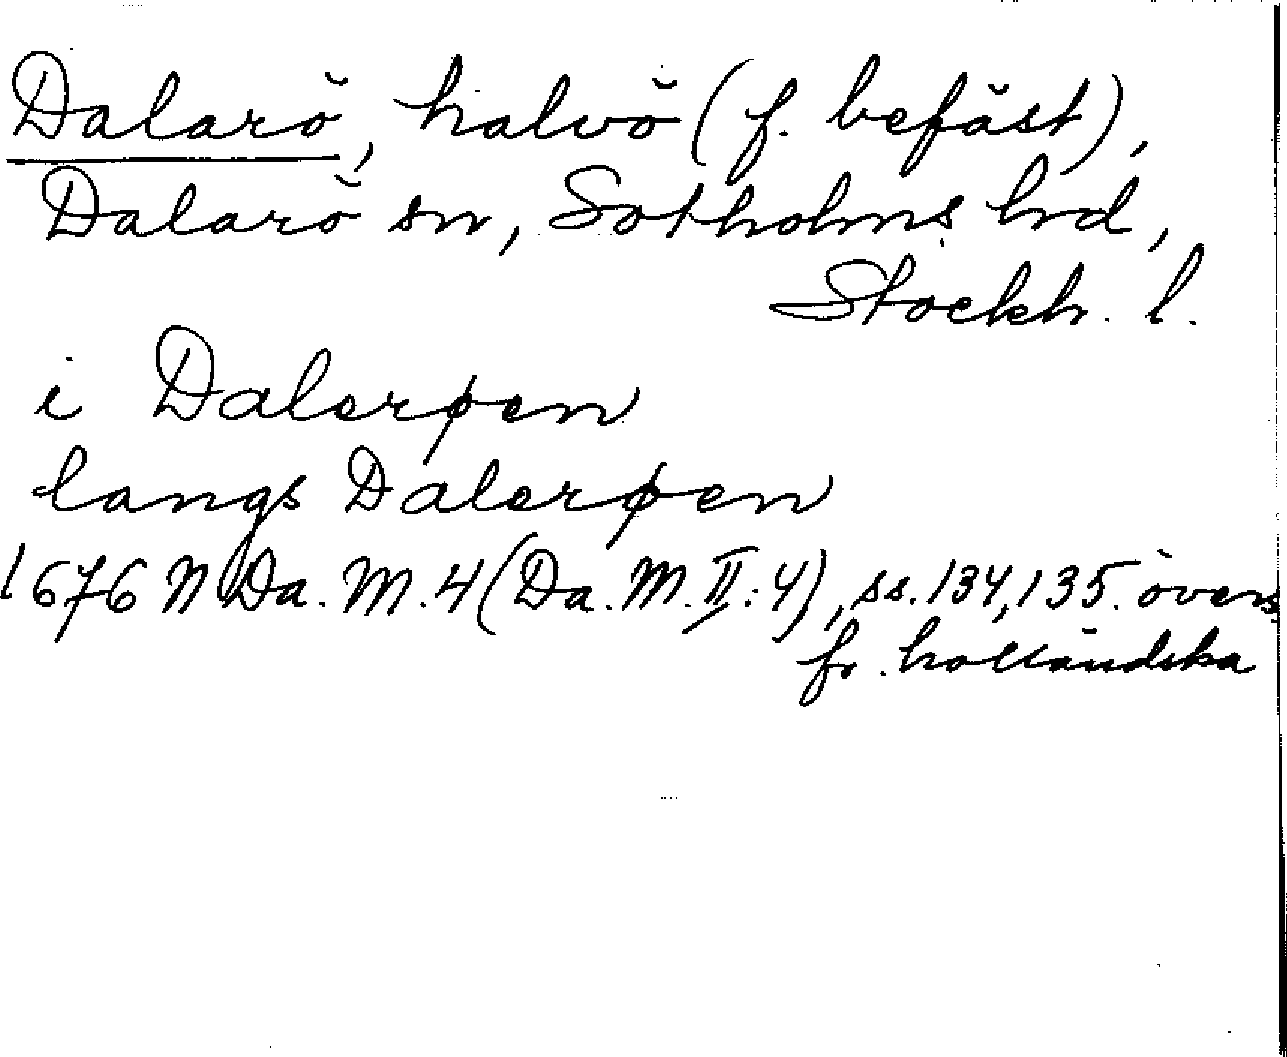 Dalarö, halvö (f. befäst),
Dalarö sn, Sotholms hd,
Stockh. l.
i Dalerøen
langs Dalerøen
1676 N Da. M. 4 (Da. M. II: 4), ss. 134, 135. övers
fr. holländska